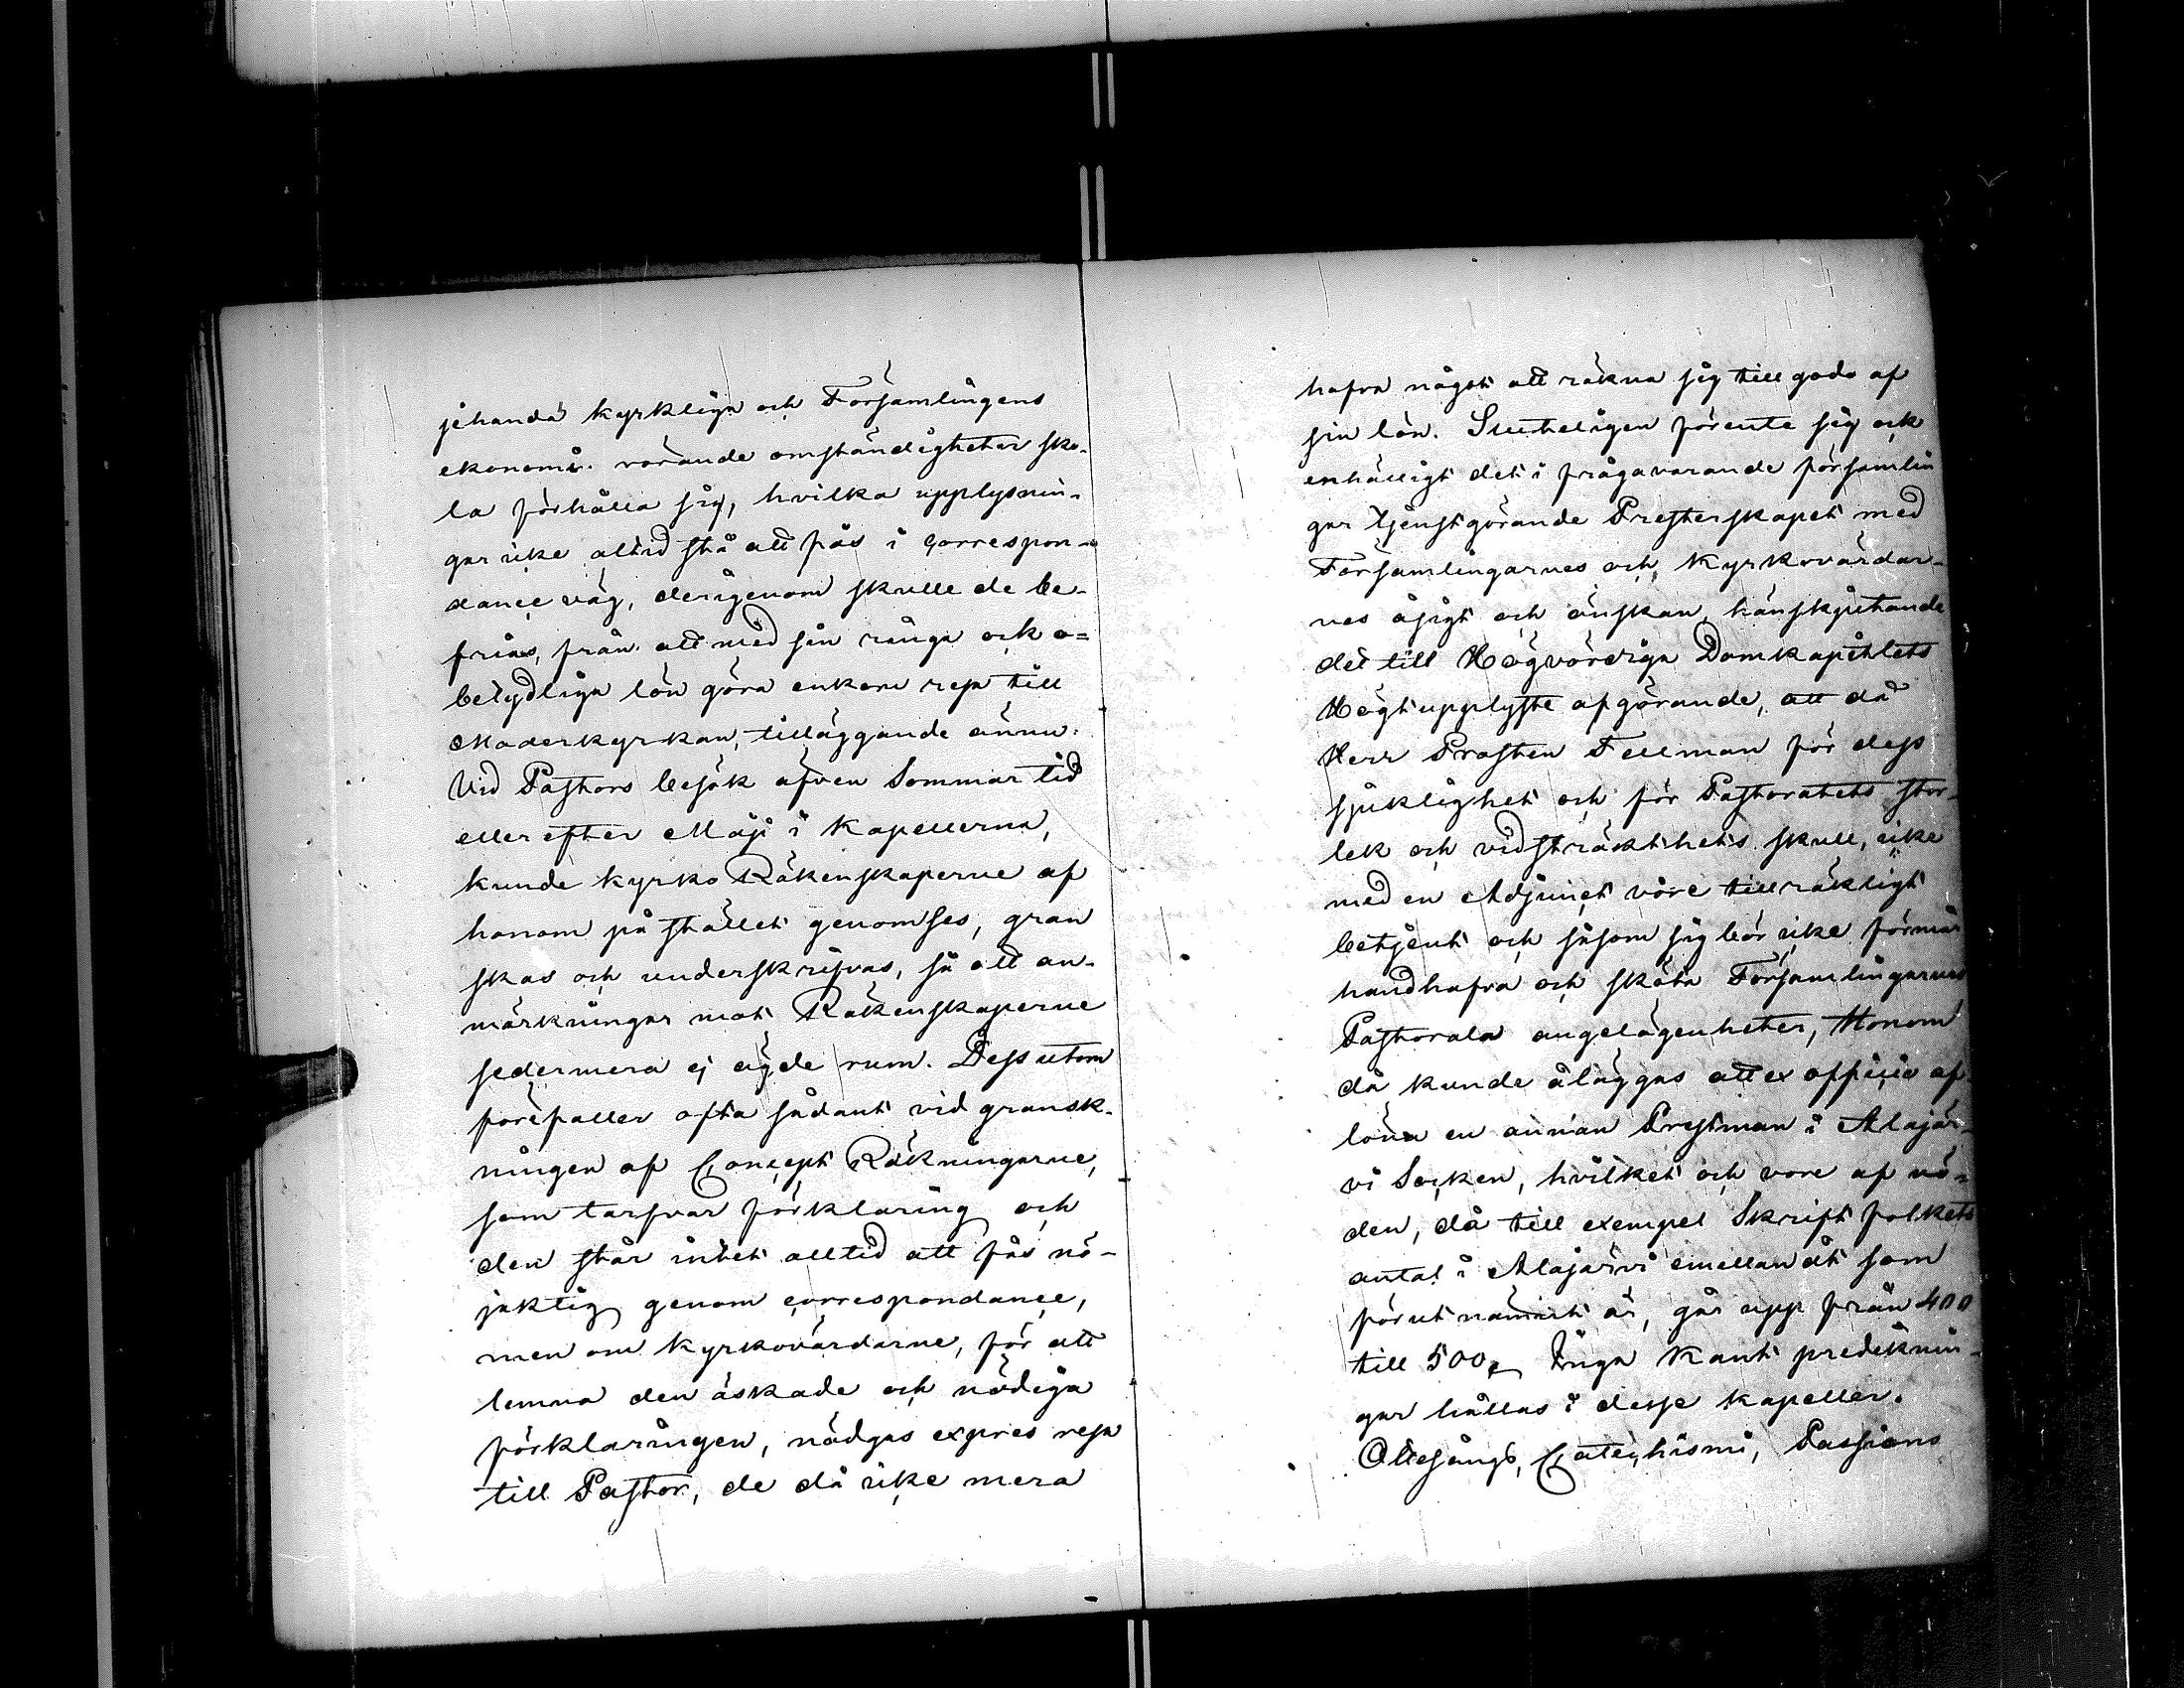 jehanda kyrkliga och Församlingens
ekonomi. rörande omständigheter sko-
la förhålla sig, hvilka upplysnin-
gar icke altid stå att fås i correspon-
dance väg, derigenom skulle de be-
frias, från att med sin ringa och o=
betydliga lön göra enkom resa till
Moderkyrkan, tilläggande ännu:
Vid Pastors besök äfven Sommar tid
eller efter Maji i Kapellerna,
kunde Kyrko Räkenskaperne af
honom på stället genomses, gran
skas och underskrifvas, så att an-
märkningar mot Räkenskaperne
sedermera ej ägde rum. Dessutom
förefaller ofta sådant vid gransk-
ningen af Concept Räkningarne,
som tarfvar förklaring och
den står intet alltid att fås nö-
jaktig genom correspondance,
men om Kyrkovärdarne, för att
lemna den äskade och nödiga
förklaringen, nödgas expres resa
till Pastor, de då icke mera
hafva något att räkna sig till godo af
sin lön. Sluteligen förente sig och
enhälligt det i frågavarande församlin
gar tjenstgörande Presterskapet med
Församlingarnes och Kyrkovärdar-
nes åsigt och önskan, hänskjutande
det till Högvördiga Domkapitlets
Högtupplyste afgörande, att då
Herr Prosten Fellman för dess
sjuklighet och för Pastoratets stor-
lek och vidsträckthets skull, icke
med en Adjunct vore tillräkligt
betjent och såsom sig bör icke förmår
handhafva och sköta Församlingarnes
Pastorala angelägenheter, Honom
då kunde åläggas att ex officio af-
löna en annan Prestman i Alajär-
vi Socken, hvilket och vore af nö-
den, då till exempel Skrift folkets
antal i Alajärvi emellanåt som
förut nämnt är, går upp från 400
till 500. Inga Kant predeknin-
gar hållas i desse kapeller.
Ottesångs, Catechismi, Passions